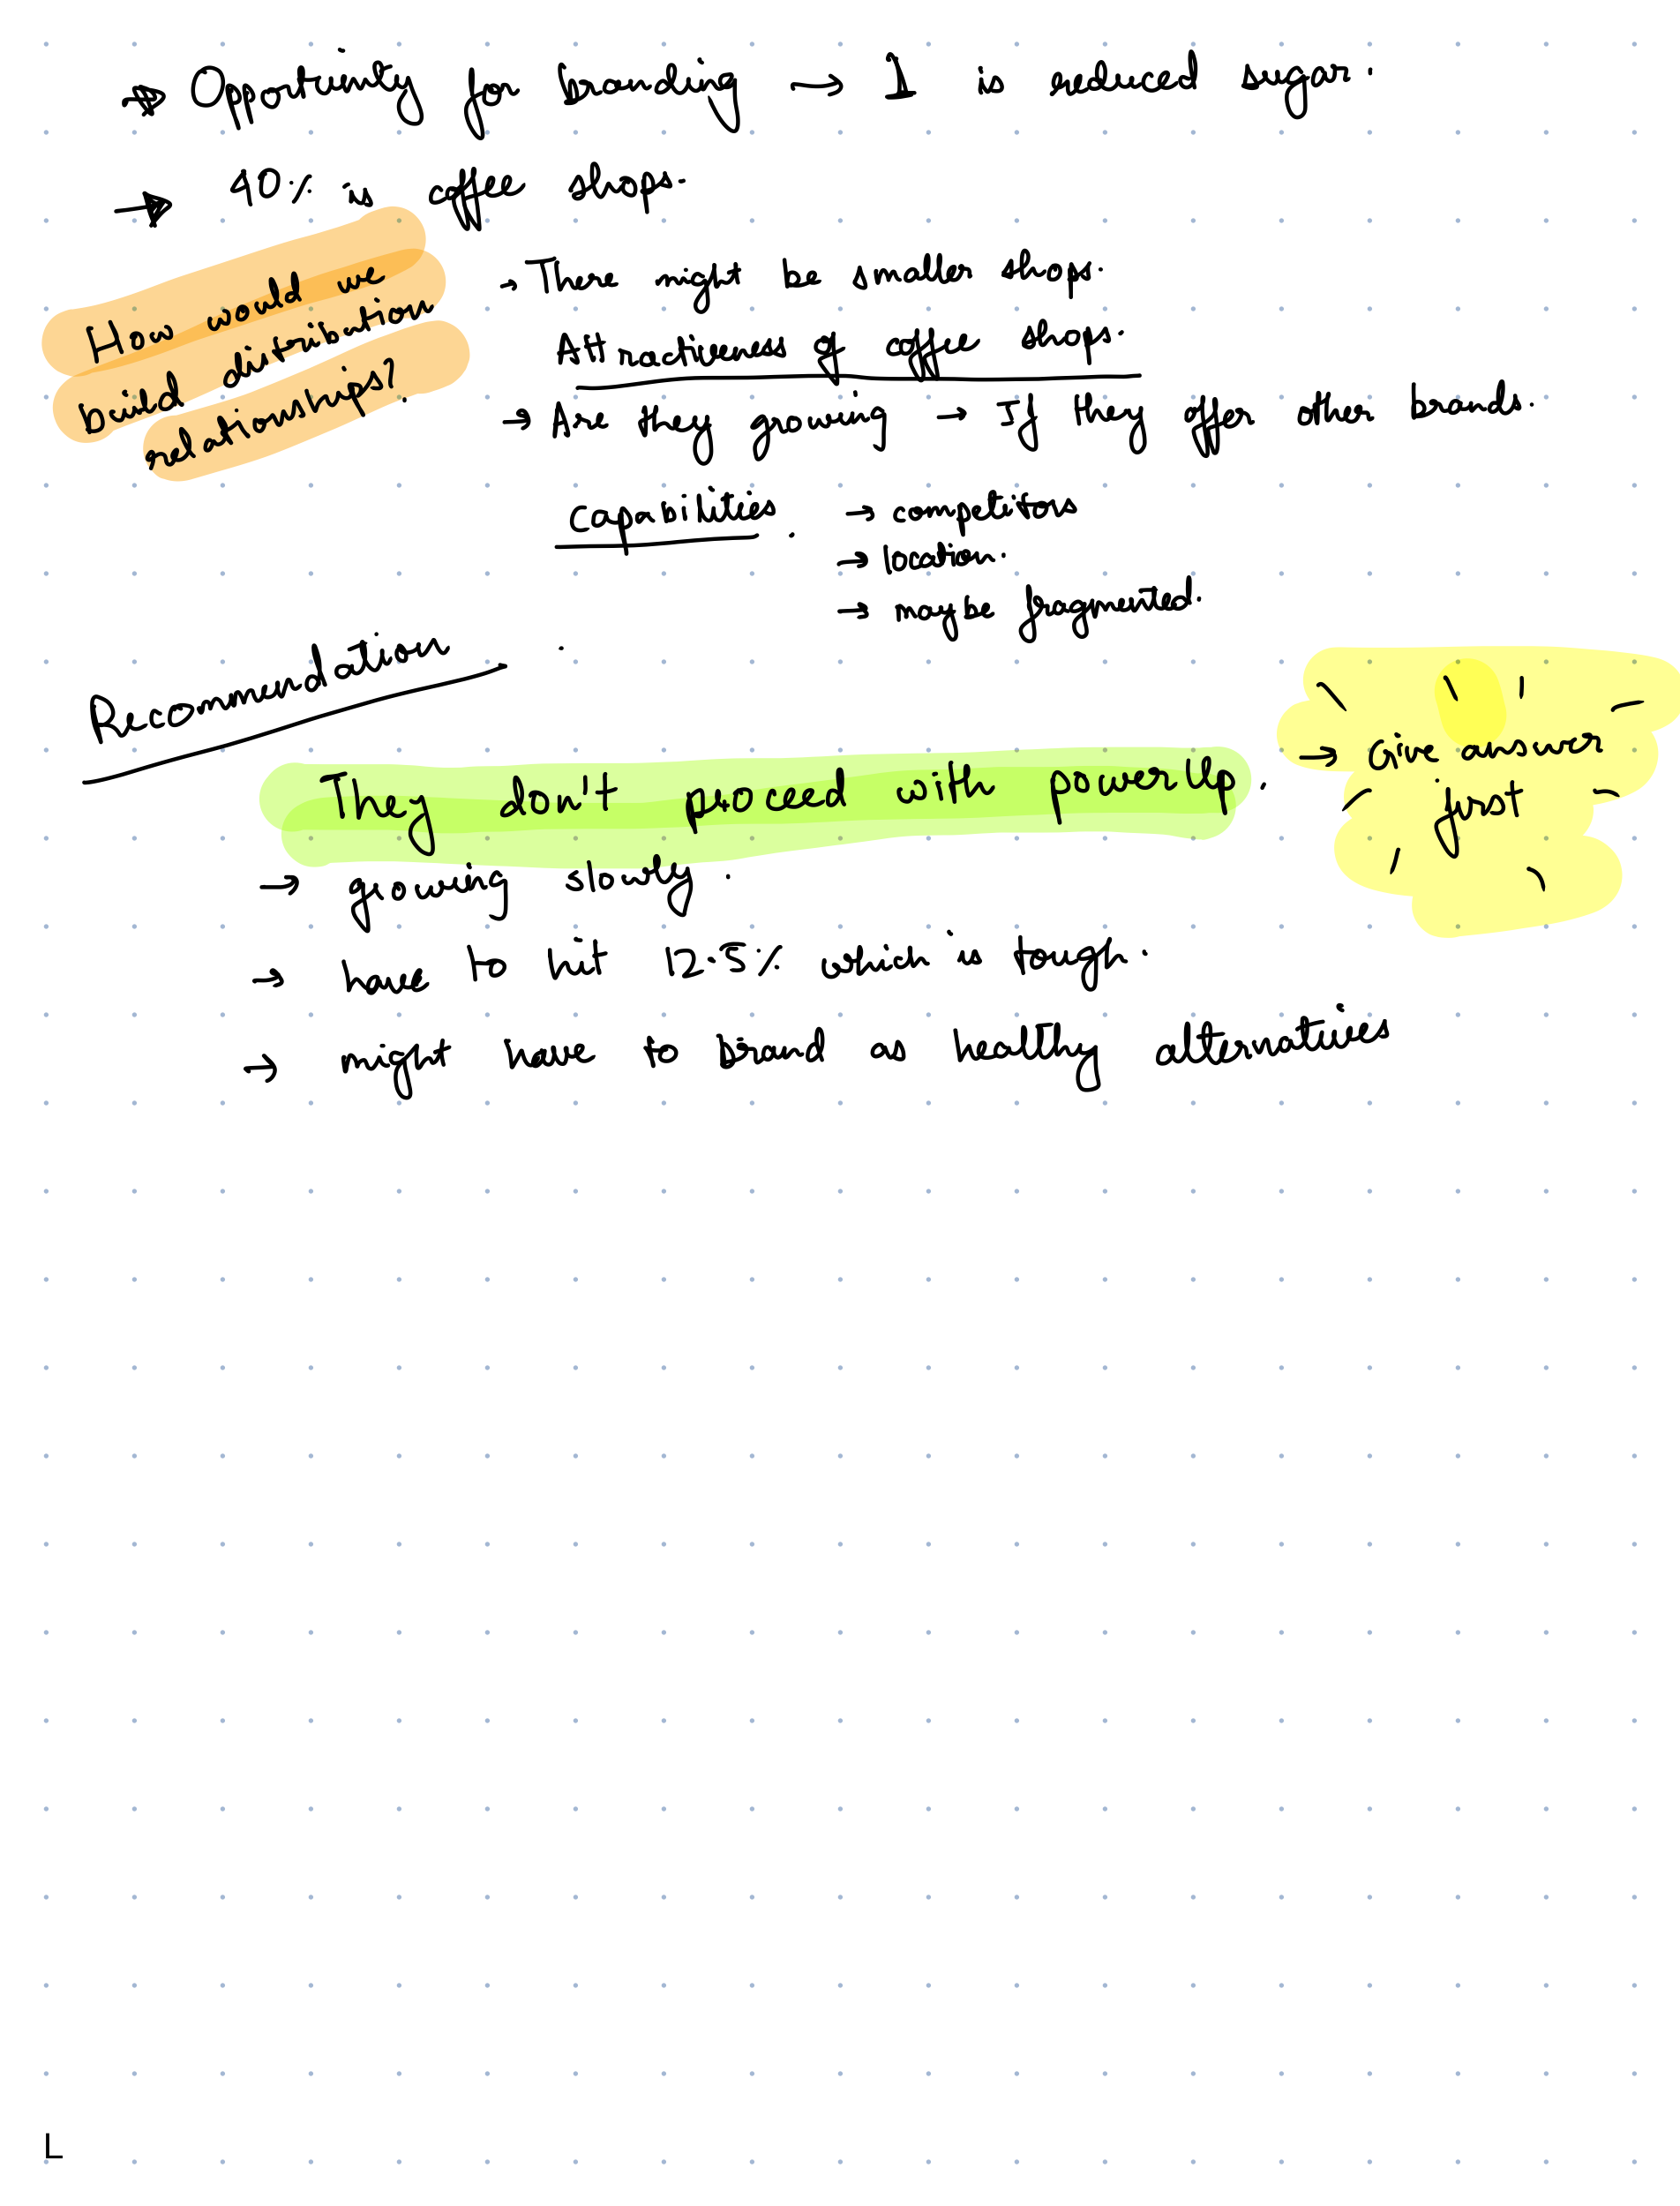 → Opportunity for branding → 1 is reduced sugar.
→ 40% is coffee shops.
How would we
build distribution
relationships?
→ There might be smaller shops.
Attractiveness of coffee shops.
→ Are they growing → If they offer other brands.
Capabilities. → competitors
→ location.
→ maybe fragmented.
Recommendation
They don't proceed with powerUp.
→ Give answer
first
→ growing slowly.
→ have to hit 12.5% which is tough.
→ might have to brand as healthy alternatives
L